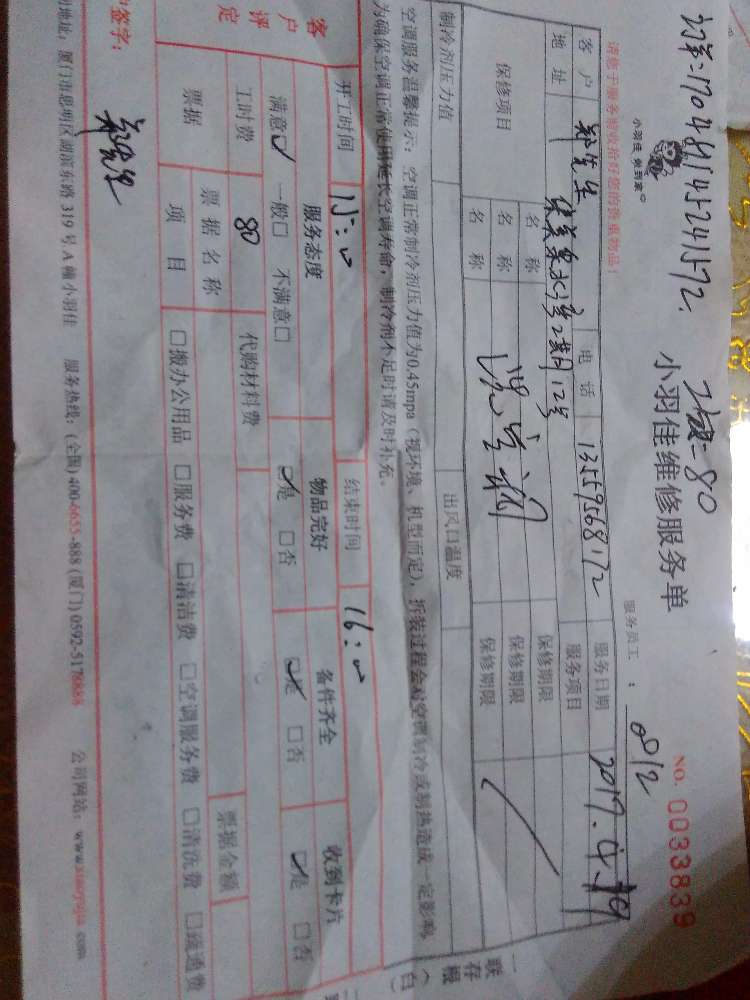 170481145241572. 80
小羽佳 快到家
小羽佳维修服务单
服务员工: 0012
NO. 0033839
请您于服务前收拾好您的贵重物品!
客户 电话 13559568172 服务日期 2017.4.19
地址 2期12号 服务项目
保修项目 名称 保修期限
名称 洗空调 保修期限
名称 保修期限
制冷剂压力值 出风口温度
空调服务温馨提示:空调正常制冷剂压力值为0.45mpa(视环境、机型而定),拆装过程会对空调制冷或制热造成一定影响,
为确保空调正常使用延长空调寿命,制冷剂不足时请及时补充。
开工时间 15:00 结束时间 16:00
客户评定 服务态度 物品完好 备件齐全 收到卡片
满意☑ 一般□ 不满意□ ☑是 □否 ☑是 □否 ☑是 □否
工时费 80 代购材料费
票据 票据名称 票据金额
项目 □搬办公用品 □服务费 □清洁费 □空调服务费 □清洗费 □疏通费
签字:
地址:厦门市思明区湖滨东路319号A幢小羽佳 服务热线:(全国)400-6655-888(厦门)0592-5178888 公司网站:www.xiaoyujia.com
一联存根(白)